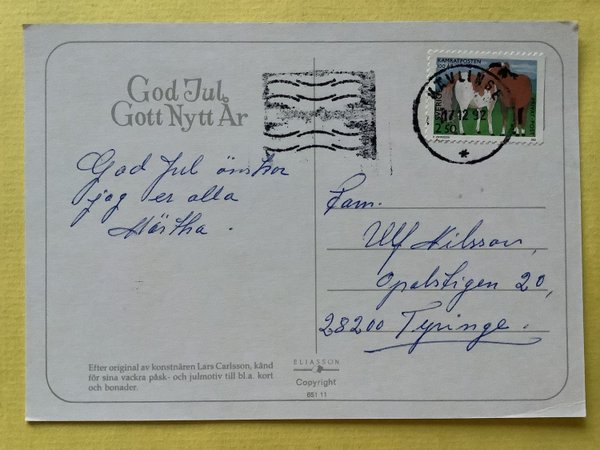 God Jul
Gott Nytt År
KAMRATPOSTEN
100 ÅR
SVERIGE
2.50
KÄVLINGE
17 12 92
God Jul önskar
jag er alla
Märtha.
Fam.
Ulf Nilsson,
Opalstigen 20,
28200 Tyringe.
Efter original av konstnären Lars Carlsson, känd
för sina vackra påsk- och julmotiv till bl.a. kort
och bonader.
ELIASSON
Copyright
651 11